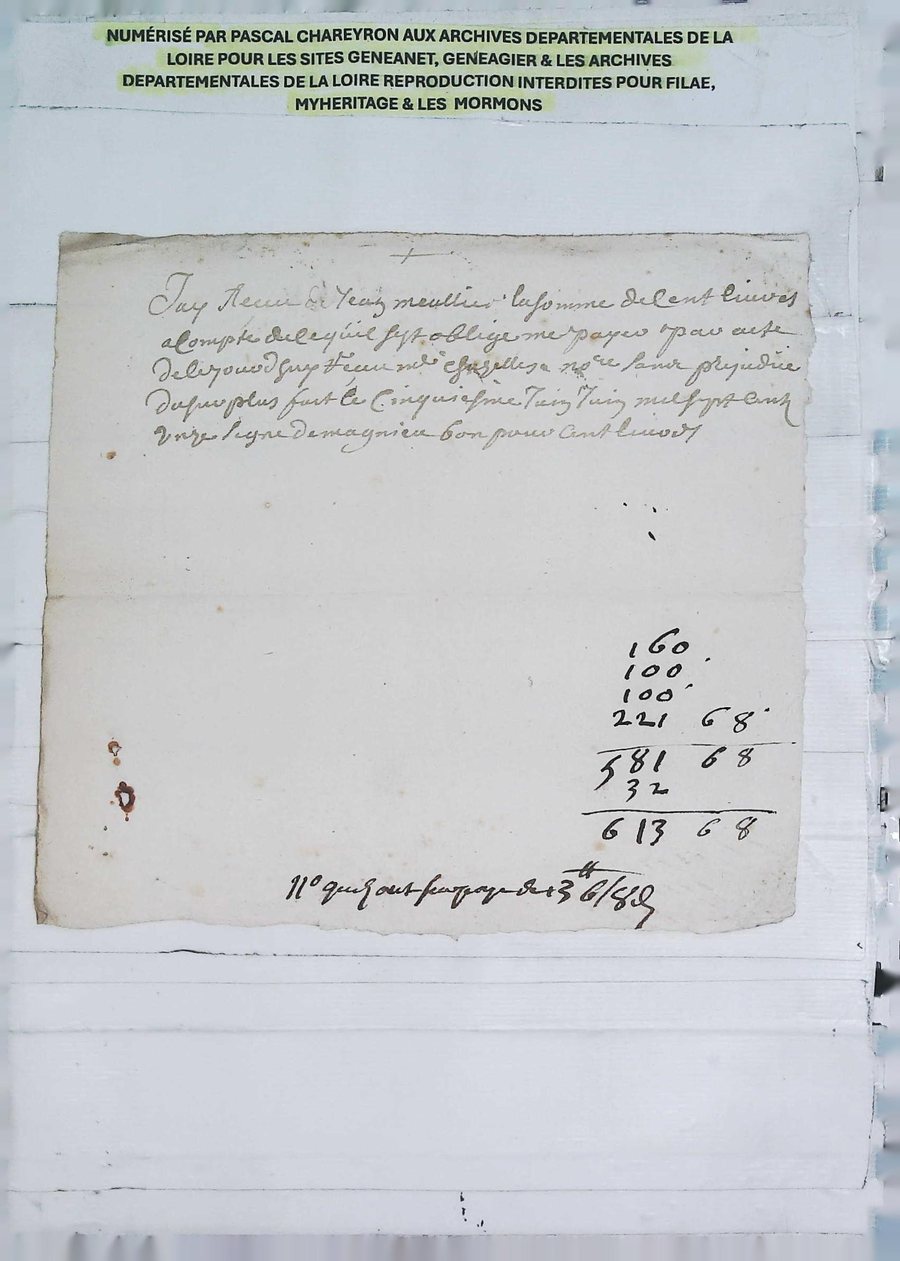 NUMÉRISÉ PAR PASCAL CHAREYRON AUX ARCHIVES DEPARTEMENTALES DE LA
LOIRE POUR LES SITES GENEANET, GENEAGIER & LES ARCHIVES
DEPARTEMENTALES DE LA LOIRE REPRODUCTION INTERDITES POUR FILAE,
MYHERITAGE & LES MORMONS
Jay Receu de Jean meallier la somme de Cent livres
a Compte de ce quil sest oblige me payer par acte
de ce jourdhuy Receu me Chazelles nore sans prejudice
du surplus fait le Cinquiesme Juin mil sept Cent
unze signe demagnieu bon pour Cent livres
160
100
100
221 6 8
581 6 8
32
613 6 8